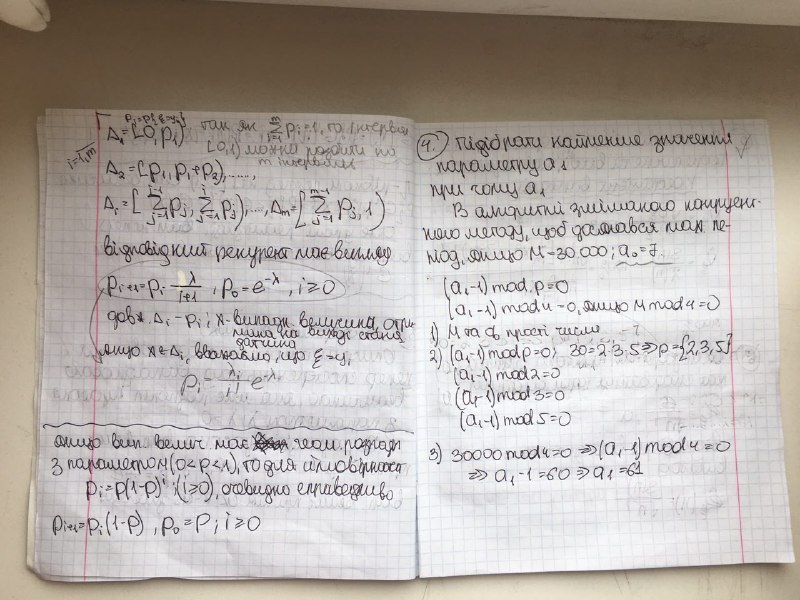 Pᵢ=P{ξ=yᵢ}
i=1,m
Δ₁=[0,p₁) так як, Σ(j=1..m) pⱼ=1, то інтервал
[0,1) можна розбити на
m інтервалів
Δ₂=[p₁, p₁+p₂),.....,
Δᵢ=[Σ(j=1..i-1) pⱼ, Σ(j=1..i) pⱼ),...,Δₘ=[Σ(j=1..m-1) pⱼ, 1)
відповідний рекурент має вигляд
pᵢ₊₁=pᵢ λ/(i+1), p₀=e^(-λ), i≥0
довж. Δᵢ-pᵢ; x-випадк. величина, отри
мана на виході станд
датчика
якщо x∈Δᵢ, вважаємо, що ξ=yᵢ
pᵢ=λⁱ/i! e^(-λ)
якщо вип. велич. має геом. розподіл
з параметром (0<p<1), то для ймовірності
pᵢ=p(1-p)ⁱ (i≥0), очевидно справедливо
pᵢ₊₁=pᵢ(1-p), p₀=p; i≥0
4. Підібрати найменше значення
параметру a₁
при чому a₁
В алгоритмі змішаного конгруент-
ного методу, щоб досягався max пе-
ріод, якщо M=30.000; a₀=7.
(a₁-1)mod p=0
(a₁-1)mod 4=0, якщо M mod 4=0
1) M та a₀ прості числа -7
2) (a₁-1)mod p=0; 30=2·3·5⇒p={2,3,5}
(a₁-1)mod 2=0
(a₁-1)mod 3=0
(a₁-1)mod 5=0
3) 30000 mod 4=0 ⇒(a₁-1)mod 4=0
⇒ a₁-1=60 ⇒a₁=61